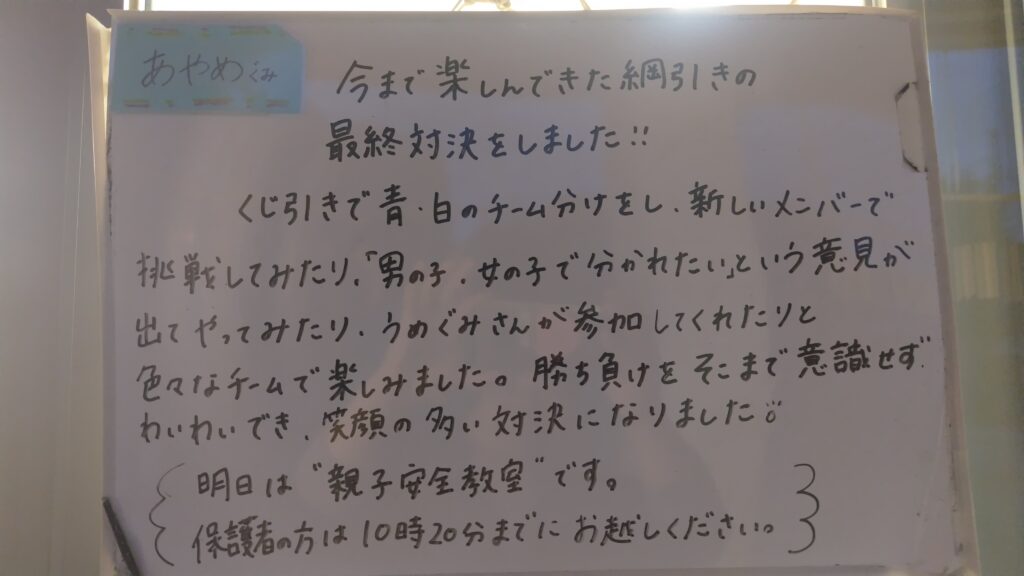 あやめぐみ
今まで楽しんできた綱引きの
最終対決をしました!!
くじ引きで青・白のチーム分けをし、新しいメンバーで
挑戦してみたり、「男の子、女の子で分かれたい」という意見が
出てやってみたり、うめぐみさんが参加してくれたりと
色々なチームで楽しみました。勝ち負けをそこまで意識せず、
わいわいでき、笑顔の多い対決になりました
明日は"親子安全教室"です。
保護者の方は10時20分までにお越しください。